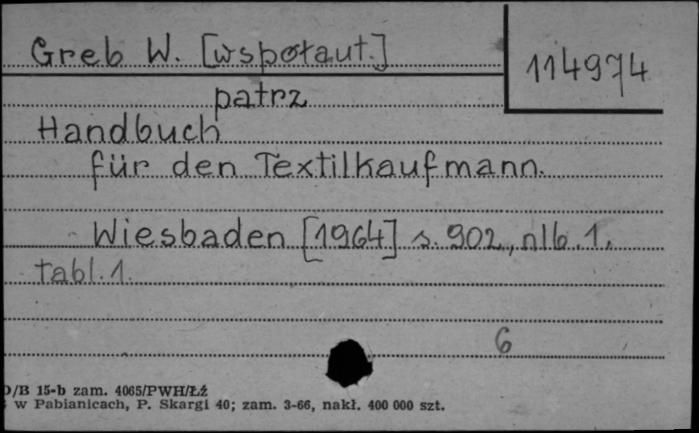 Greb W. [wspołaut.]
114974
patrz
Handbuch
für den Textilkaufmann.
Wiesbaden [1964] s. 902, nlb. 1,
tabl. 1.
6
D/B 15-b zam. 4065/PWH/Łż
w Pabianicach, P. Skargi 40; zam. 3-66, nakł. 400 000 szt.